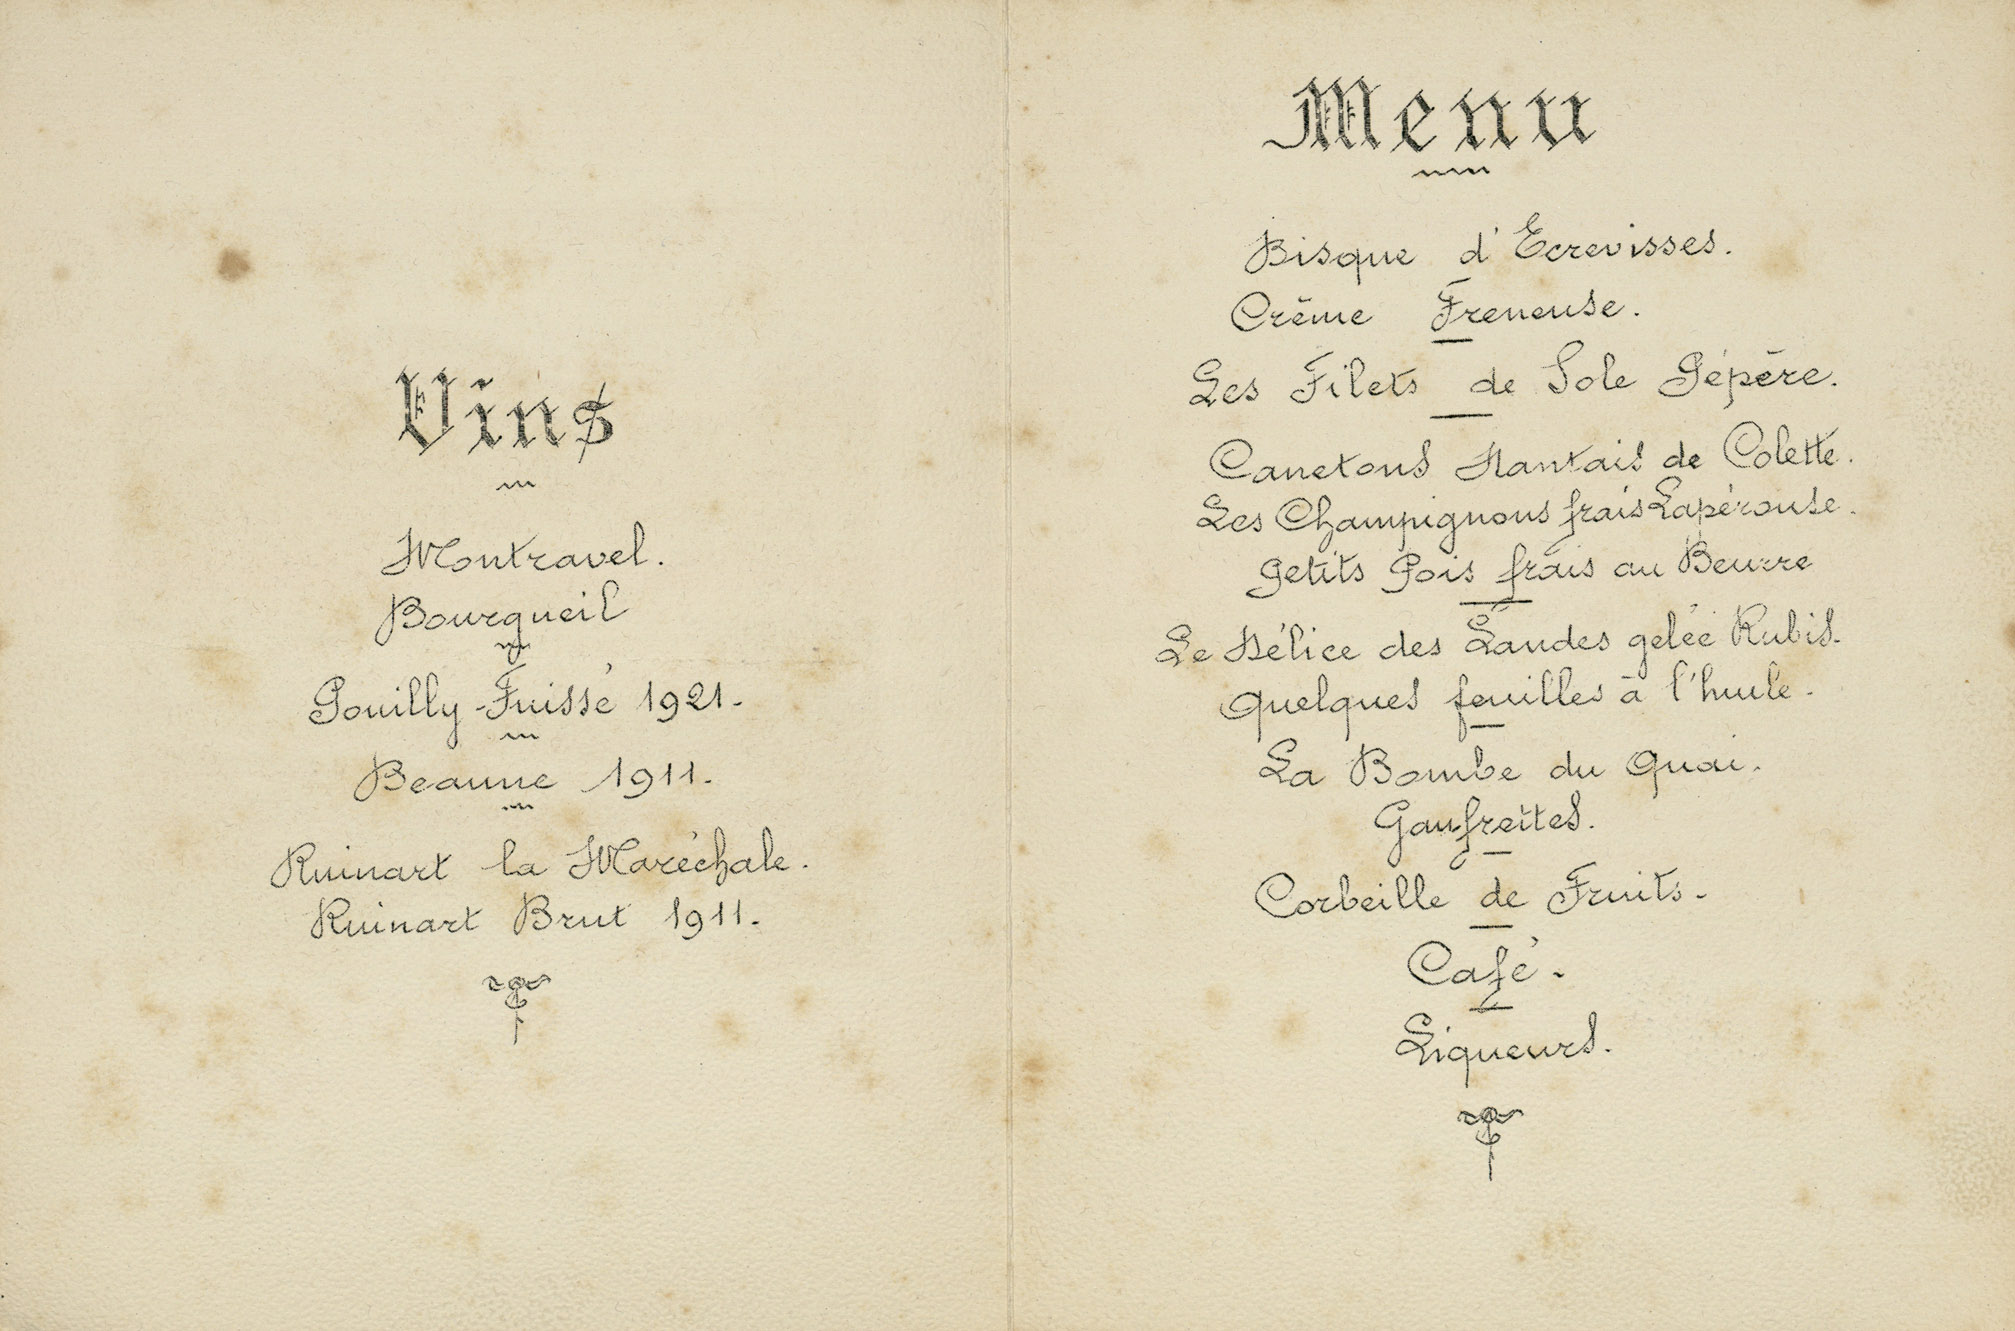 Vins
Montravel.
Bourgueil
Pouilly-Fuissé 1921.
Beaune 1911.
Ruinart la Maréchale.
Ruinart Brut 1911.
Menu
Bisque d'Ecrevisses.
Crême Freneuse.
Les Filets de Sole Pépère.
Canetons Nantais de Colette.
Les Champignons frais Lapérouse.
Petits Pois frais au Beurre
Le Délice des Landes gelée Rubis.
Quelques feuilles à l'huile.
La Bombe du Quai.
Gaufrettes.
Corbeille de Fruits.
Café.
Liqueurs.